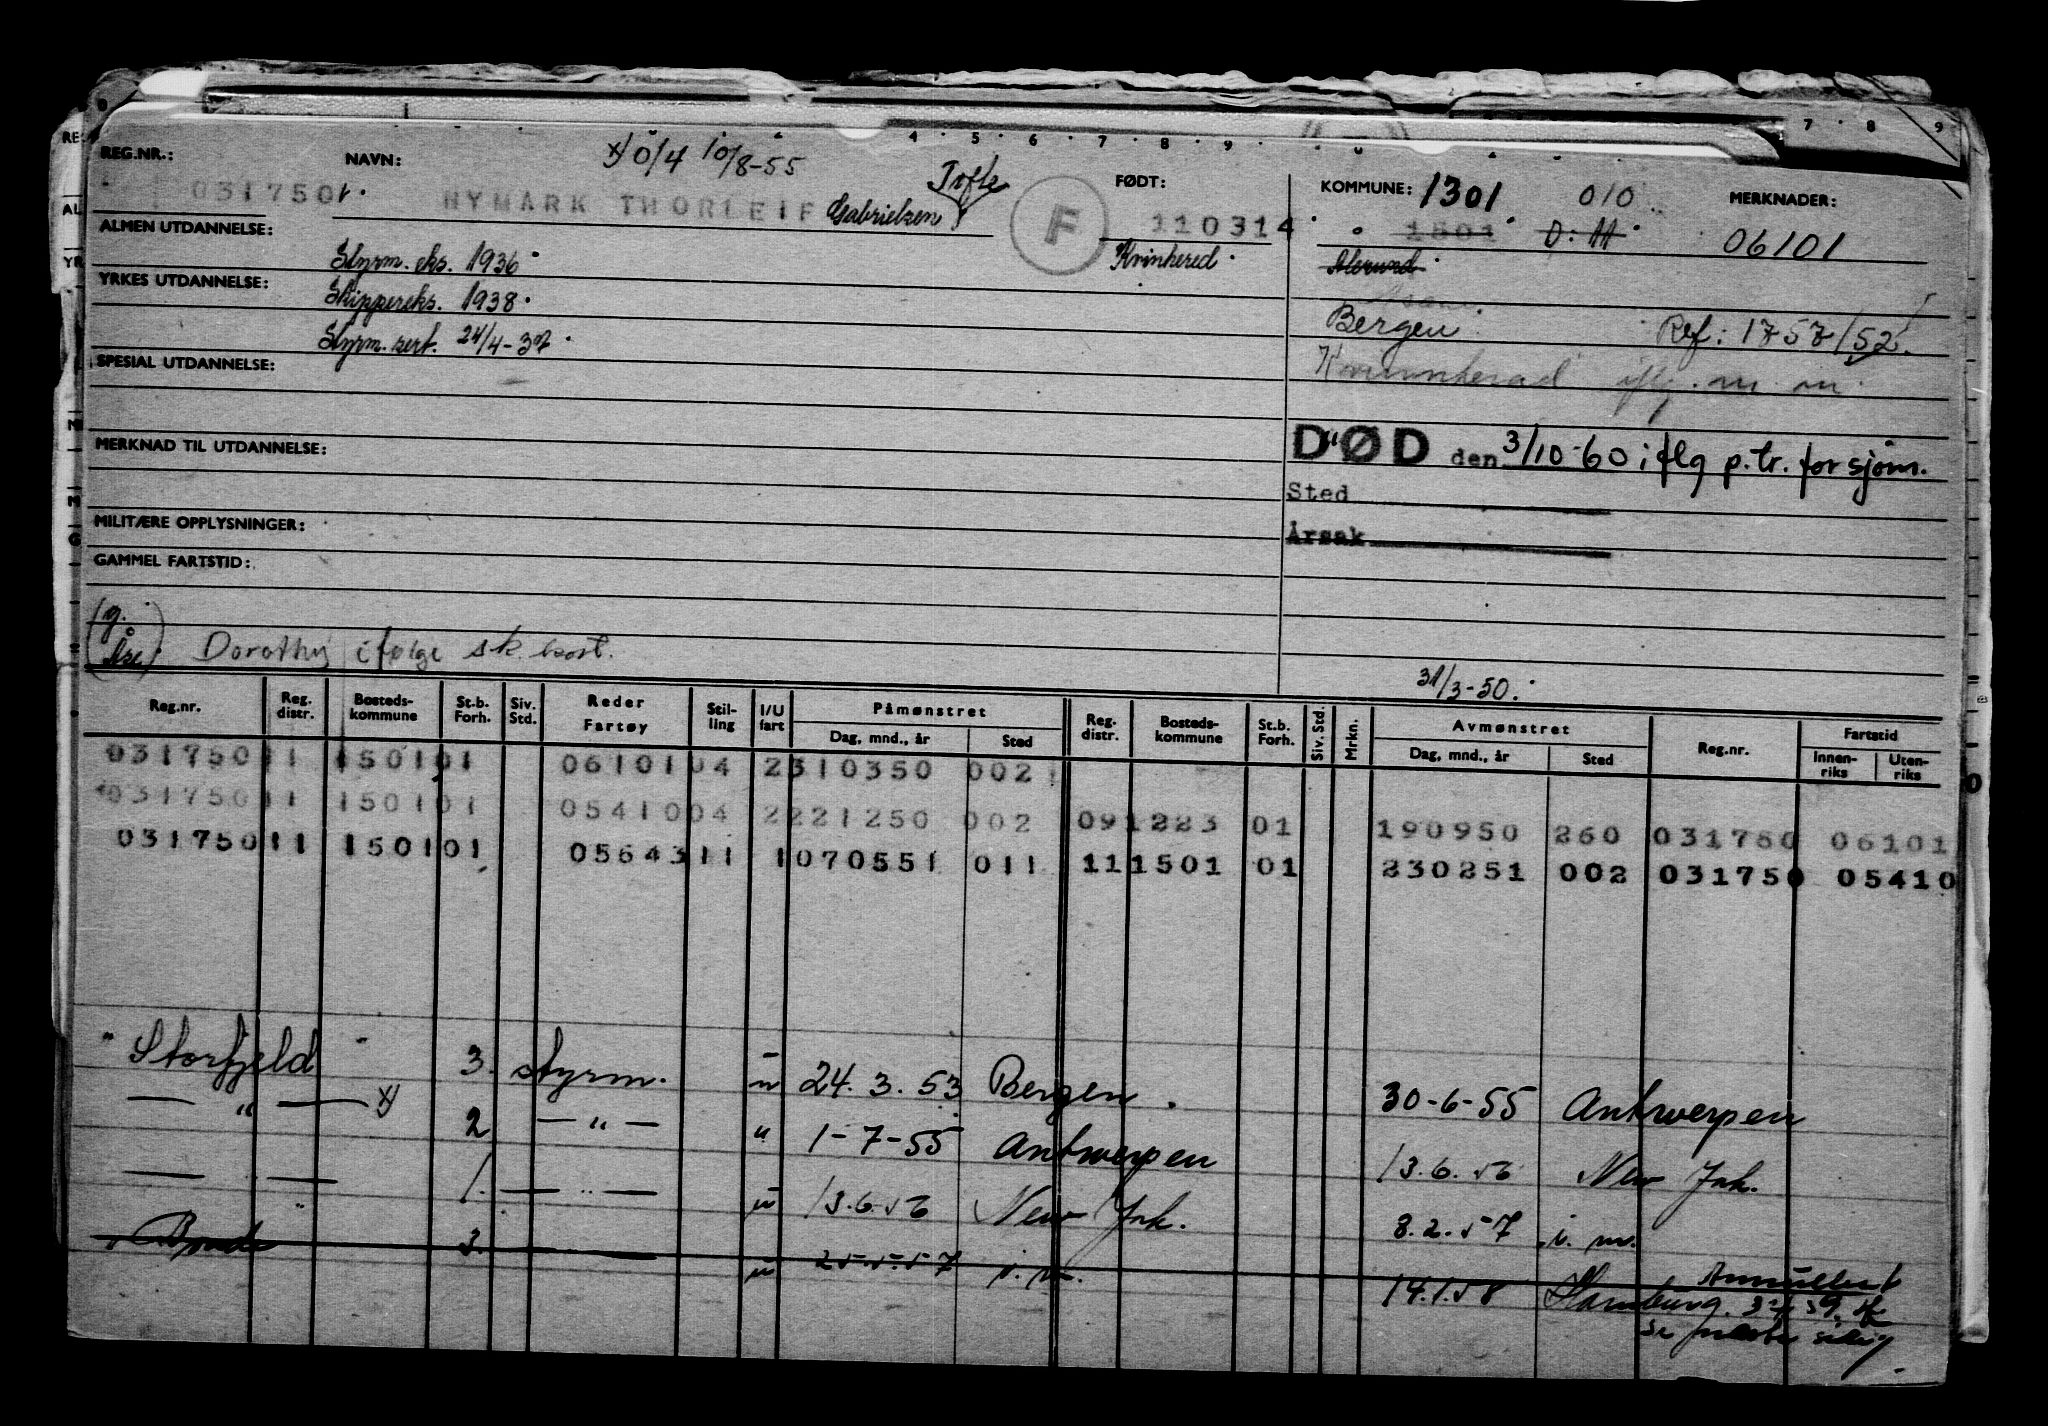 x) 0/4 10/8-55
REG.NR.: NAVN: Tofte FØDT: KOMMUNE: 1301 010 MERKNADER:
031750 NYMARK THORLEIF Gabrielsen F 110314 1501 06101
ALMEN UTDANNELSE: Styrm. eks. 1936 Kvinhered Ålesund
YRKES UTDANNELSE: Skippereks. 1938.
Bergen Ref: 1757/52.
Styrm. sert. 24/4-37
SPESIAL UTDANNELSE: Kvinnherad
MERKNAD TIL UTDANNELSE: DØD den 3/10-60 iflg p.tr. for sjøm.
Sted
MILITÆRE OPPLYSNINGER: Årsak
GAMMEL FARTSTID:
Dorothy ifølge sk. kort.
31/3-50.
Reg.nr. Reg. distr. Bosteds-kommune St.b. Forh. Siv. Std. Reder Fartøy Stil-ling I/U fart Påmønstret Dag, mnd., år Sted Reg. distr. Bosteds-kommune St.b. Forh. Siv. Std. Mrkn. Avmønstret Dag, mnd., år Sted Reg.nr. Fartstid Innen-riks Uten-riks
031750 11 1501 01 06101 04 2 310350 002
031750 11 1501 01 05410 04 2 221250 002 09 1223 01 190950 260 031750 06101
031750 11 1501 01 05643 11 1 070551 011 11 1501 01 230251 002 031750 05410
"Storfjeld" 3. styrm. u 24.3.53 Bergen. 30-6-55 Antwerpen
— " — x) 2 — " — u 1-7-55 Antwerpen 13.6.56 New York.
— " — 1. — " — u 13.6.56 New York. 8.2.57 i. m.
3. — u 25.5.57 14.1.58 Hamburg. Annullert
se neste side